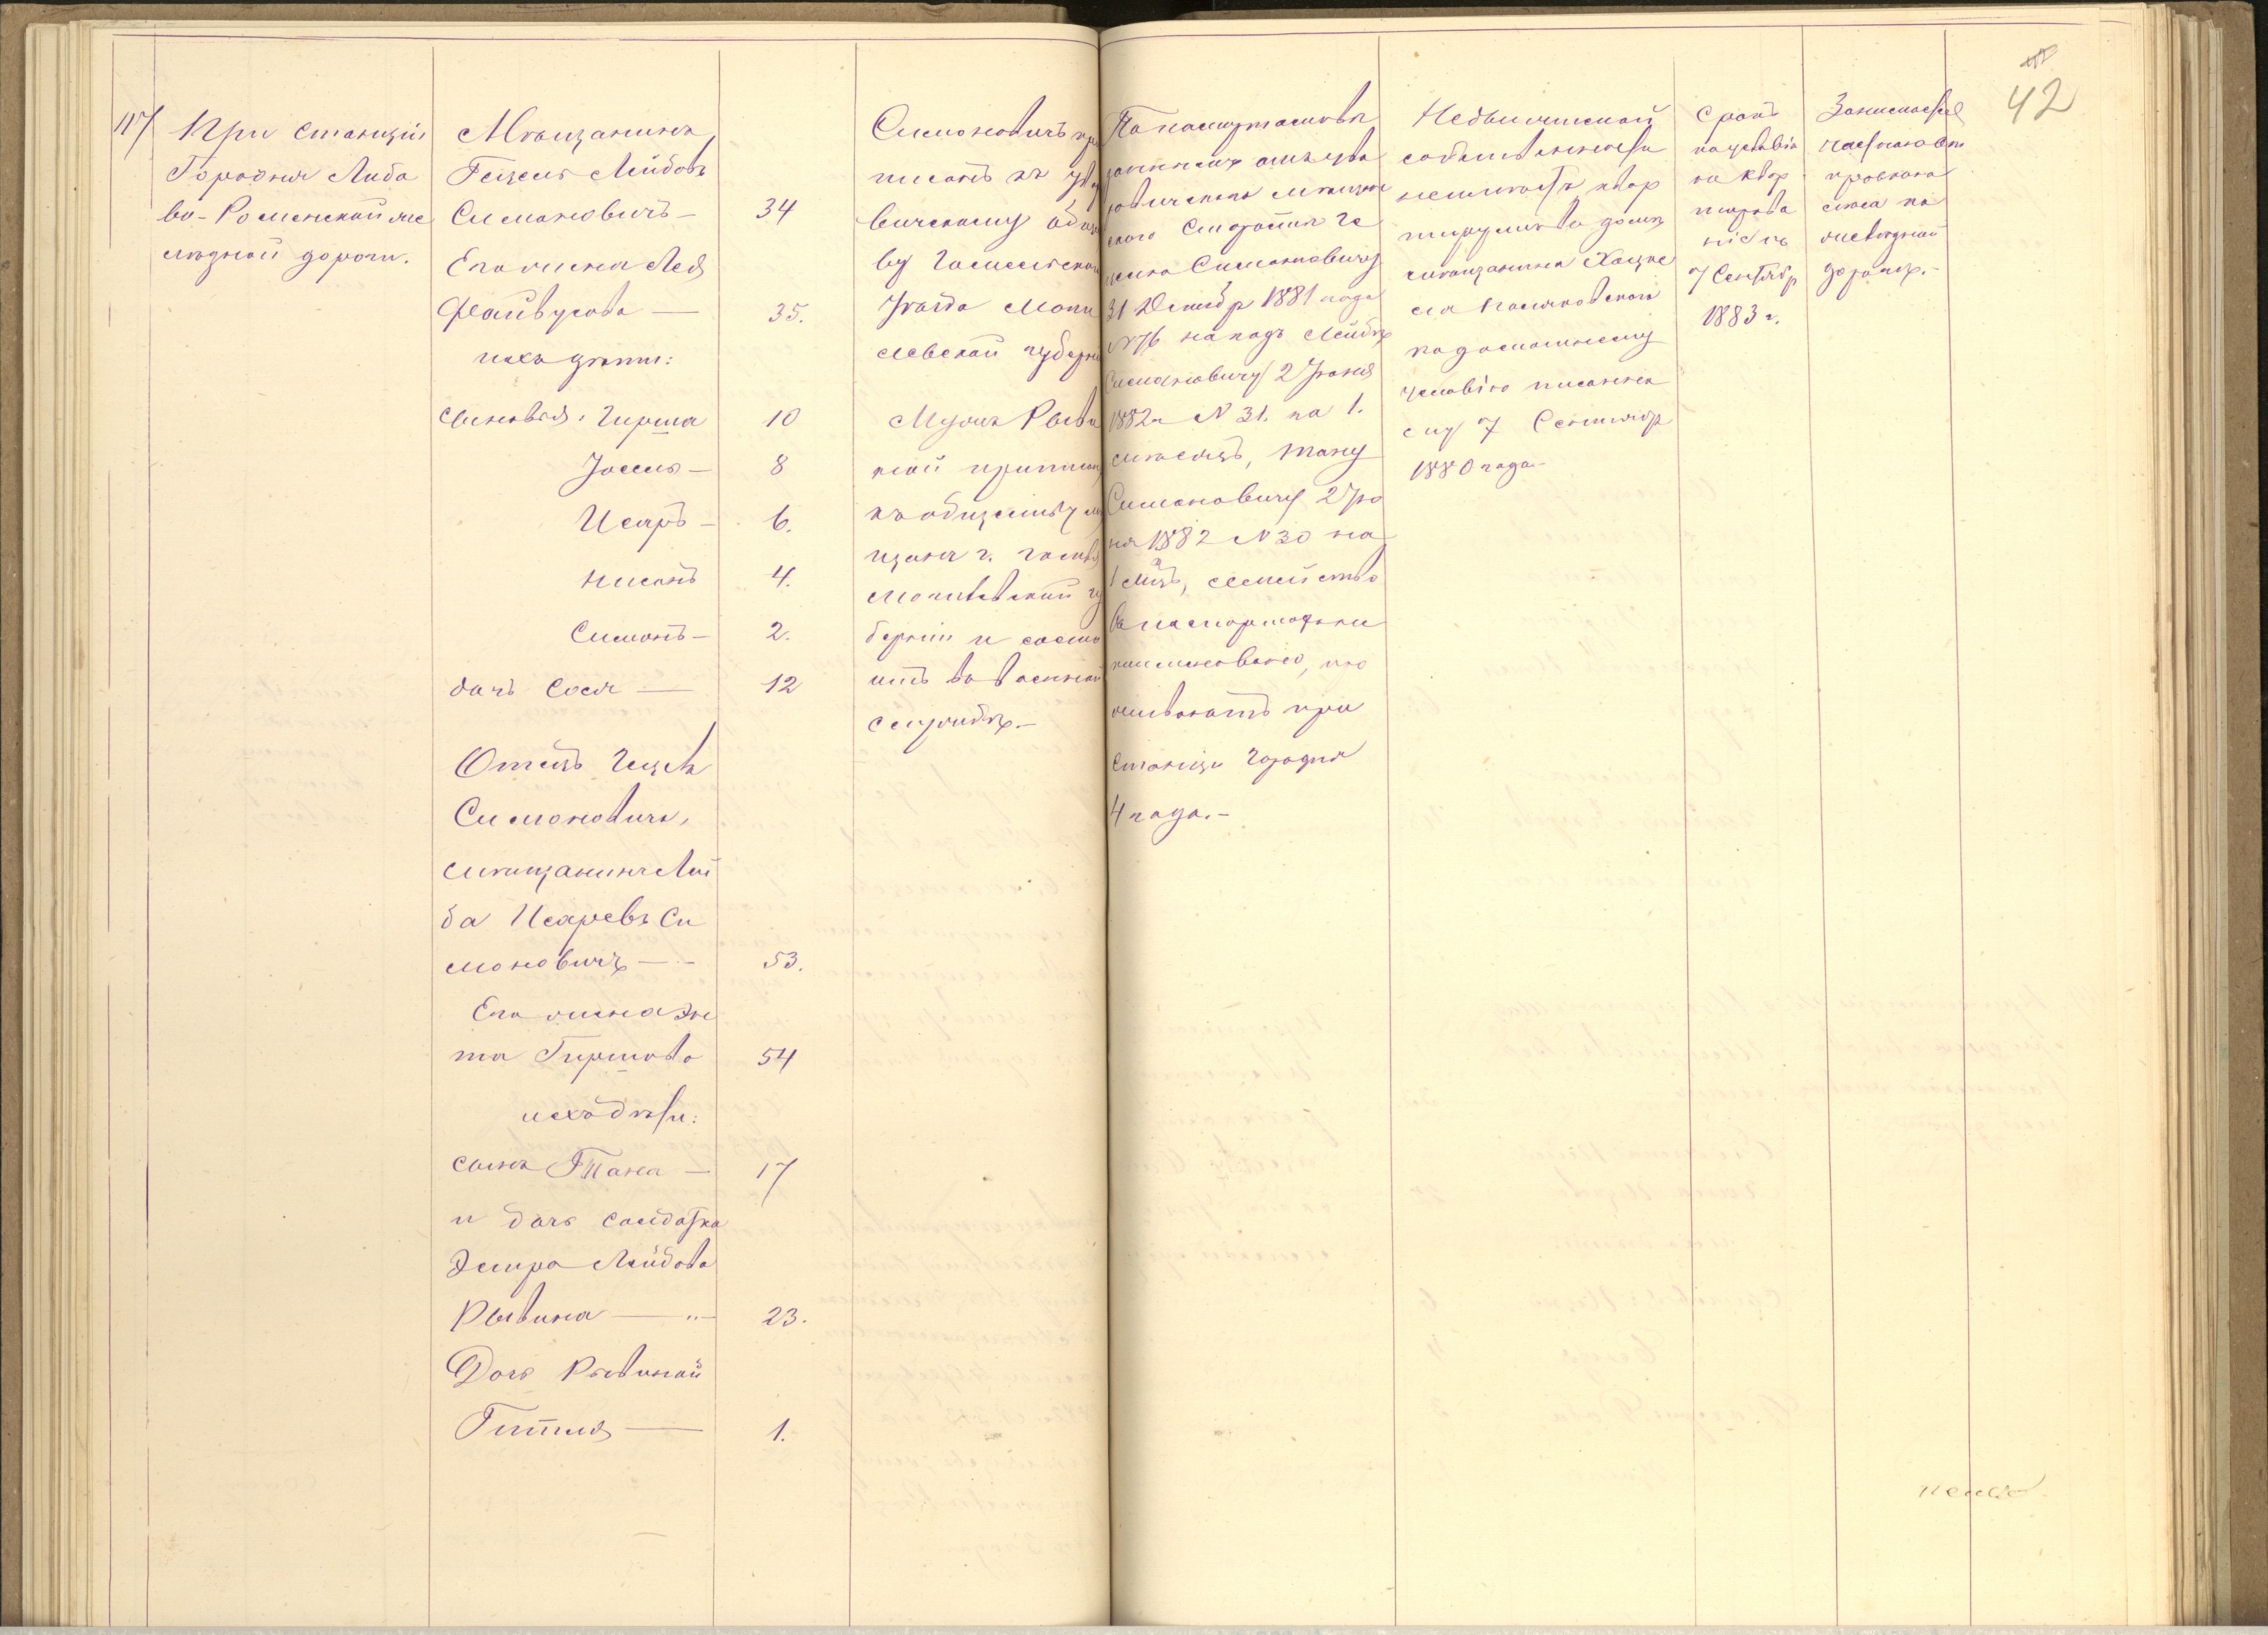 42
117
При станціи
Городня Либа
во-Роменской же
лѣзной дороги.
Мѣщанинъ
Гецель Лейбовъ
Симоновичъ — 34
Его жена Лея
Файвусова — 35.
ихъ дѣти:
сыновья: Гирша 10
Іосель — 8
Исаръ — 6.
Нисонъ 4.
Симонъ — 2.
дочь Сося — 12
Отецъ Гецеля
Симоновича,
мѣщанинъ Лей
ба Исаревъ Си
моновичъ — 53.
Его жена
та Гиршова 54
ихъ дѣти:
сынъ Тана — 17
и дочь солдатка
Эстра Лейбова
Рывкина — 23.
Дочь Рывкиной
Гитля — 1.
Симоновичъ при
писанъ къ
вичскому общест
ву Гомельскаго
уѣзда Моги
левской губерніи
Мужъ Рывки
ной приписанъ
къ обществу мѣ
щанъ г. Гомеля
Могилевской гу
берніи и состо
итъ въ военной
службѣ. —
По паспортамъ
выданнымъ
мѣщан
скаго Старосты Ге
целю Симоновичу
31 Декабр 1881 года
№ 76 на годъ Лейбѣ
Симоновичу 2 Іюня
1882 г. № 31. на 1.
мѣсяцъ, Тану
Симоновичу 2 Ію
ня 1882 № 30 на
1 мѣсъ, семейство
въ паспортахъ не
поименовано, про
живаютъ при
станціи Городня
4 года. —
Недвижимой
собственности
неимѣютъ квар
тируютъ въ домѣ
мѣщанина Хацке
ля
по домашнему
условію писанно
му 7 Сентябр
1880 года —
Срокъ
условія
на квар
тирова
ніе
7 Сентябр
1883 г.
Занимается
провозо
лѣса по
желѣзной
дорогѣ. —